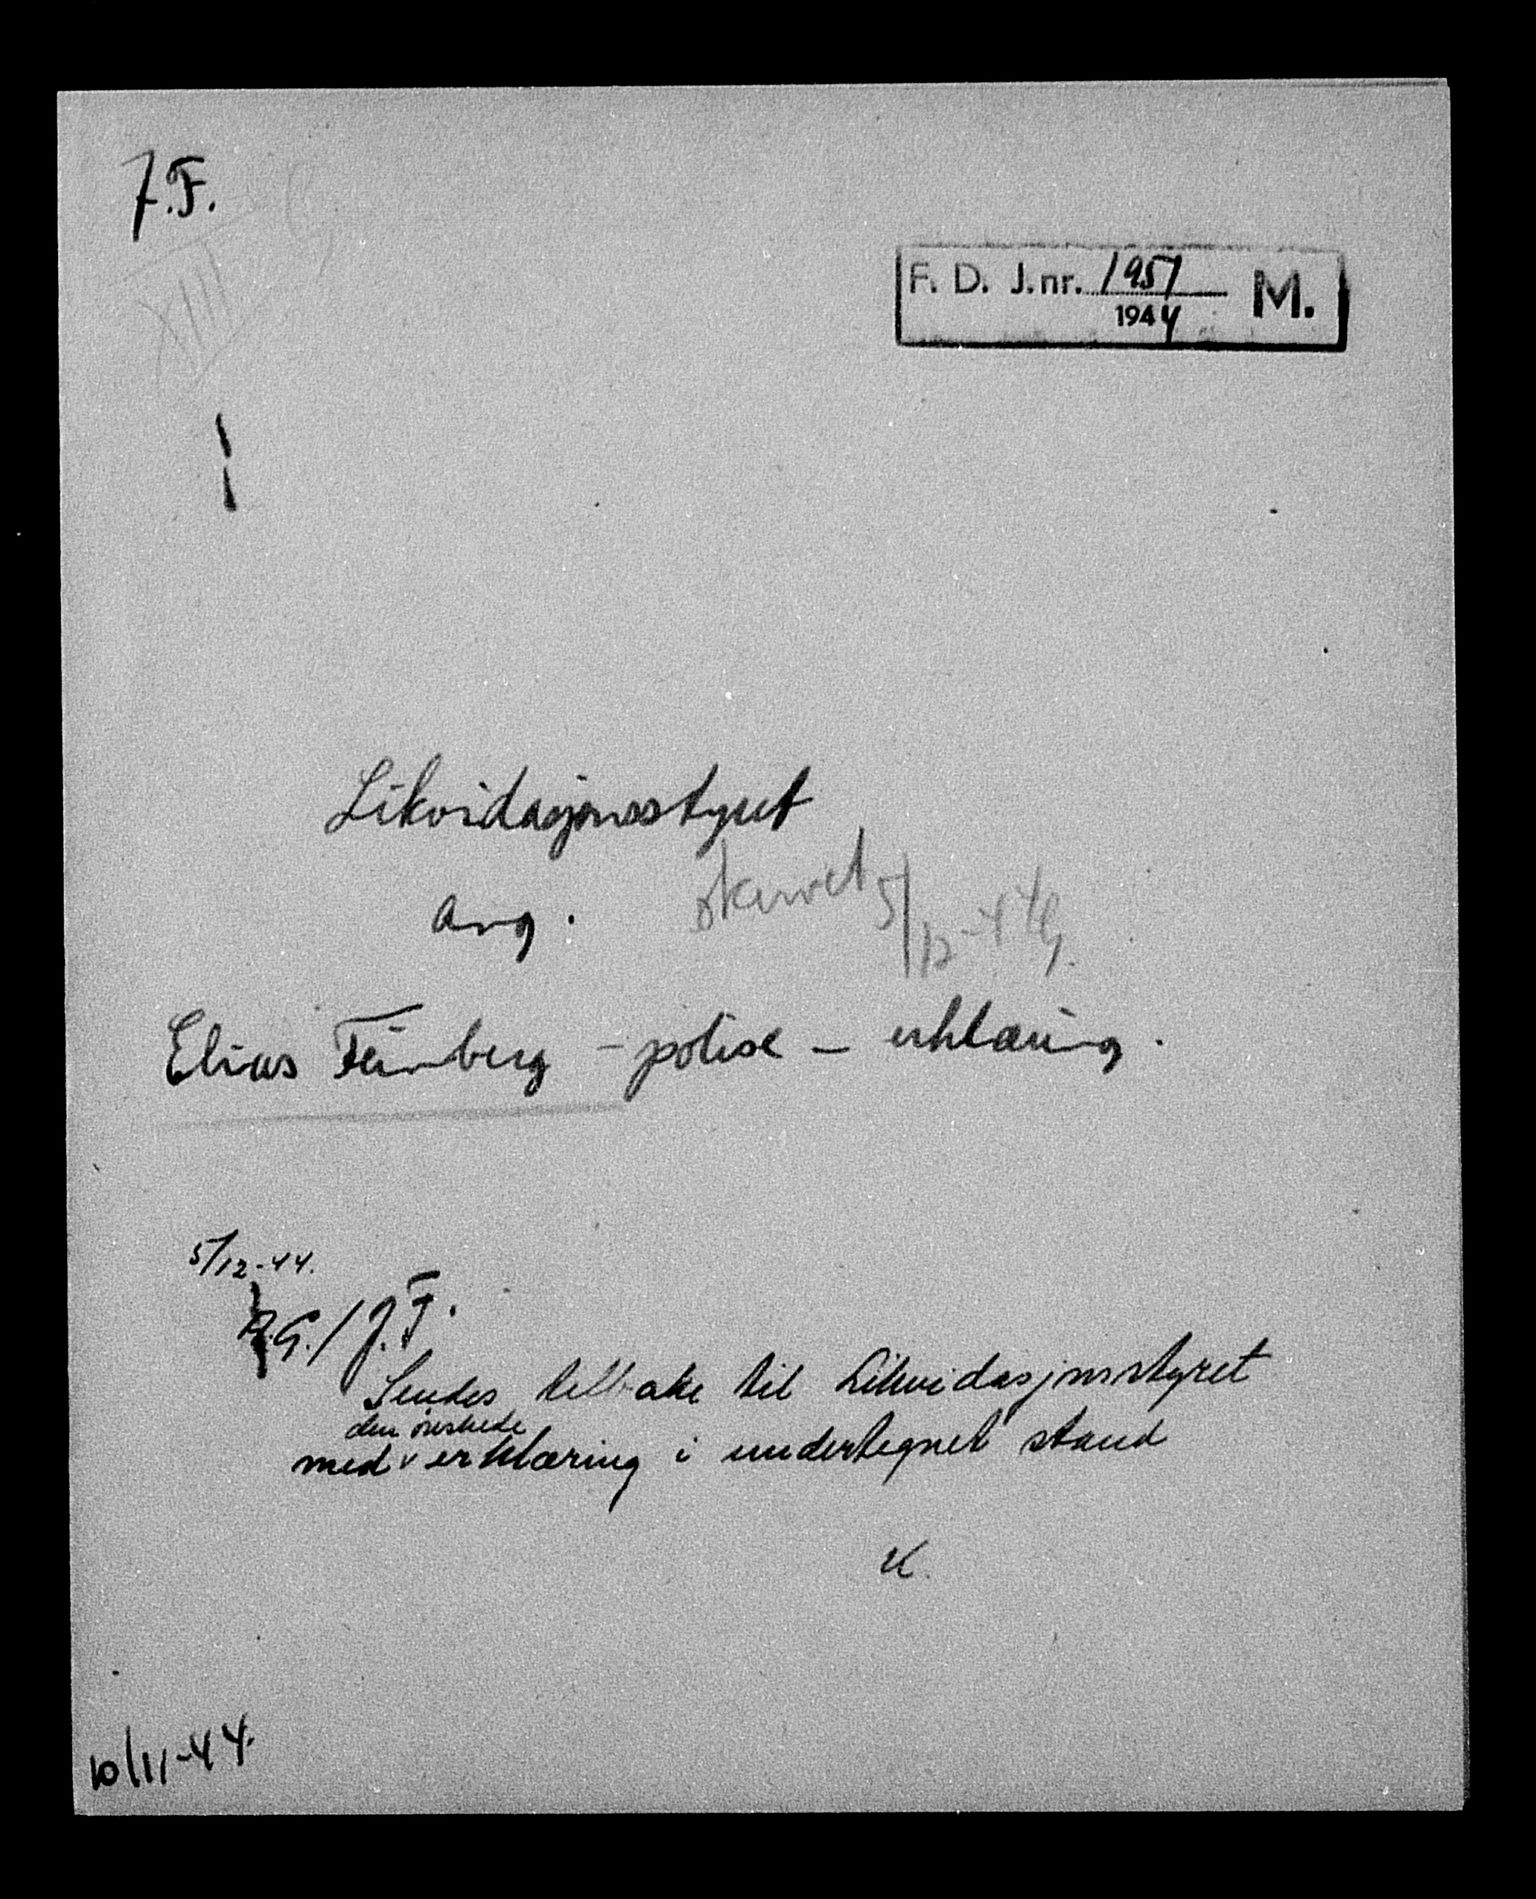 7.F.
XIII
F. D. J.nr. 1951 M.
1944
Likvidasjonsstyret
ang.
skrevet 5/12-44
Elias Feinberg - polise - erklæring.
5/12-44.
A.G./J.F.
Sendes tilbake til Likvidasjonsstyret
den ønskede
med v erklæring i undertegnet stand
K.
10/11-44.